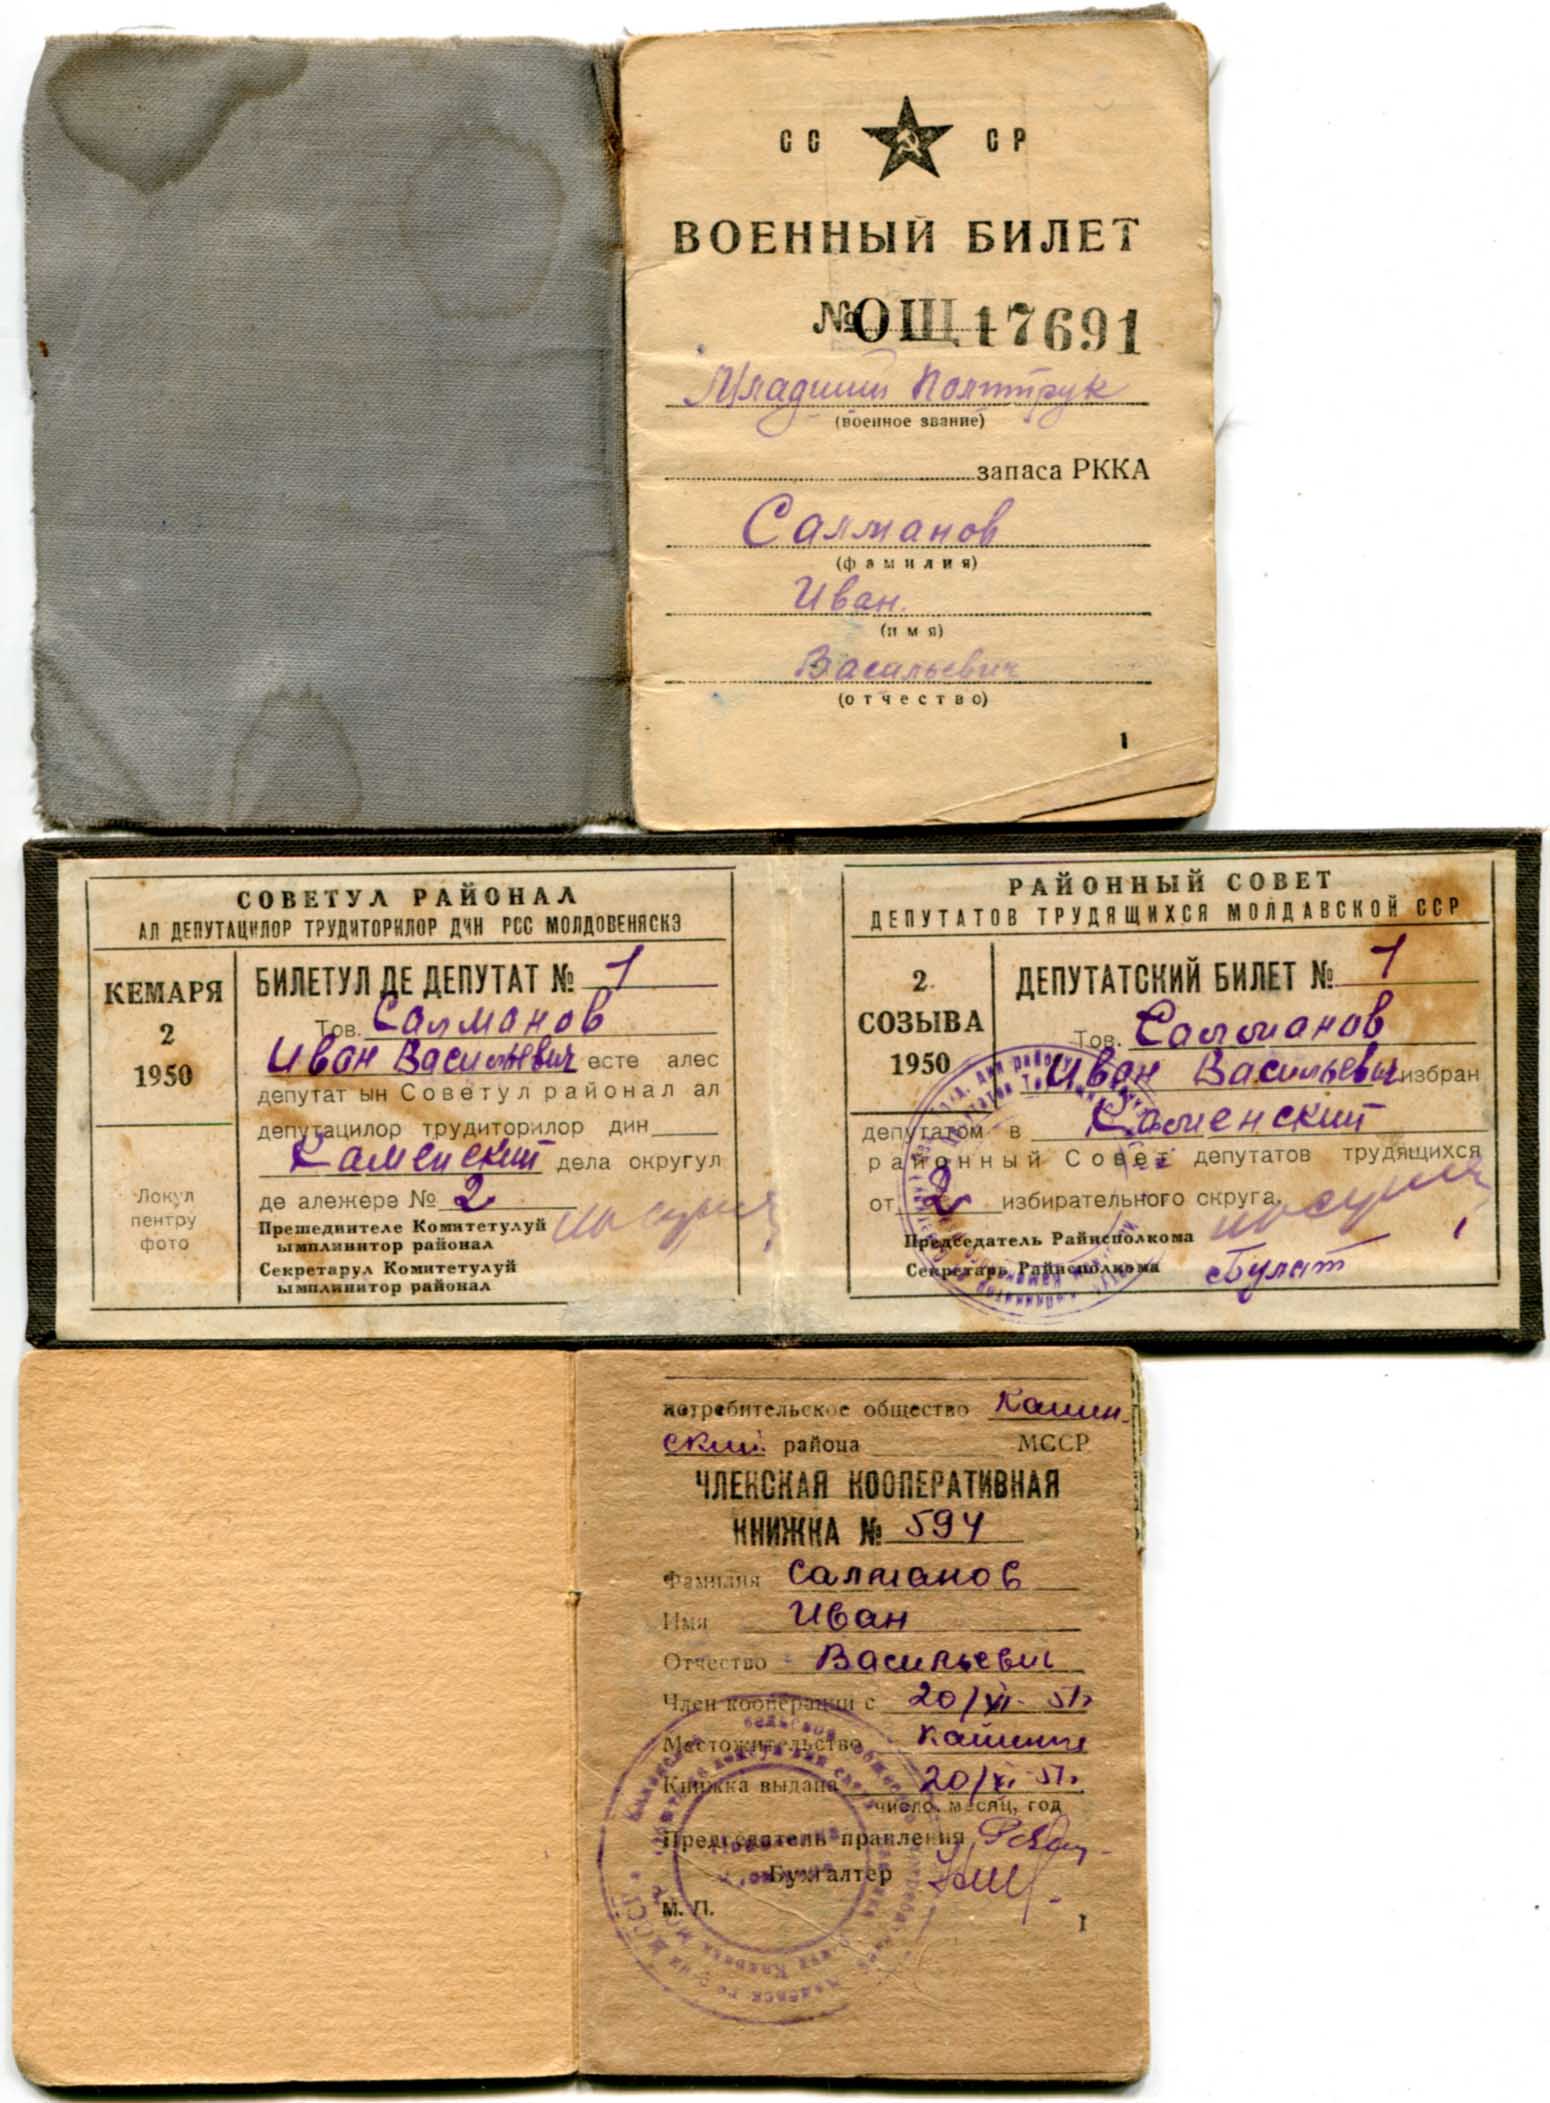 СС СР
ВОЕННЫЙ БИЛЕТ
№ ОЩ 17691
Младший Политрук
(военное звание)
запаса РККА
Салманов
(фамилия)
Иван.
(имя)
Васильевич
(отчество)
1
СОВЕТУЛ РАЙОНАЛ
АЛ ДЕПУТАЦИЛОР ТРУДИТОРИЛОР ДИН РСС МОЛДОВЕНЯСКЭ
КЕМАРЯ
2
1950
Локул
пентру
фото
БИЛЕТУЛ ДЕ ДЕПУТАТ № 1
Тов. Салманов
Иван Васильевич есте алес
депутат ын Советул районал ал
депутацилор трудиторилор дин
Каменский дела округул
де алежере № 2
Прешединтеле Комитетулуй
ымплинитор районал
Секретарул Комитетулуй
ымплинитор районал
РАЙОННЫЙ СОВЕТ
ДЕПУТАТОВ ТРУДЯЩИХСЯ МОЛДАВСКОЙ ССР
2
СОЗЫВА
1950
ДЕПУТАТСКИЙ БИЛЕТ № 1
Тов. Салманов
Иван Васильевич избран
депутатом в Каменский
районный Совет депутатов трудящихся
от 2 избирательного округа.
Председатель Райисполкома
Секретарь Райисполкома Булат
потребительское общество Камен-
ский района МССР
ЧЛЕНСКАЯ КООПЕРАТИВНАЯ
КНИЖКА № 594
Фамилия Салманов
Имя Иван
Отчество Васильевич
Член кооперации с 20/XI-51г
Местожительство
Книжка выдана 20/XI-51г.
число, месяц, год
Председатель правления
Бухгалтер
М. П.
1